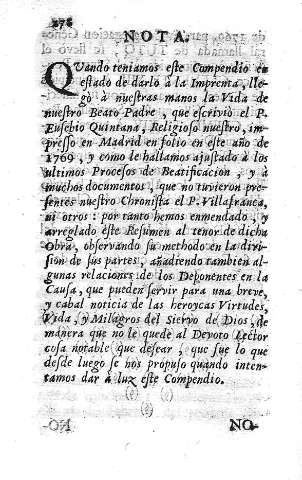 276
NOTA.
QUando teniamos este Compendio en
estado de darlo à la Imprenta, lle-
gò à nuestras manos la Vida de
nuestro Beato Padre, que escriviò el P.
Eusebio Quintana, Religioso nuestro, im-
presso en Madrid en folio en este año de
1760, y como le hallamos ajustado à los
ultimos Procesos de Beatificacion, y à
muchos documentos, que no tuvieron pre-
sentes nuestro Chronista el P. Villafranca,
ni otros: por tanto hemos enmendado, y
arreglado este Resumen al tenor de dicha
Obra, observando su methodo en la divi-
sion de sus partes, añadiendo tambien al-
gunas relaciones de los Deponentes en la
Causa, que pueden servir para una breve,
y cabal noticia de las heroycas Virtudes,
Vida, y Milagros del Siervo de Dios, de
manera que no le quede al Devoto Lector
cosa notable que desear, que fue lo que
desde luego se nos propuso quando inten-
tamos dar à luz este Compendio.
NO-